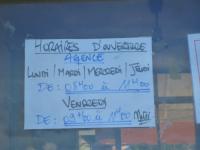 HORAIRES D'OUVERTURE
AGENCE
LUNDI / MARDI / MERCREDI / JEUDI
DE : 08H00 à 11H00
VENDREDI
DE : 09H00 à 11H00